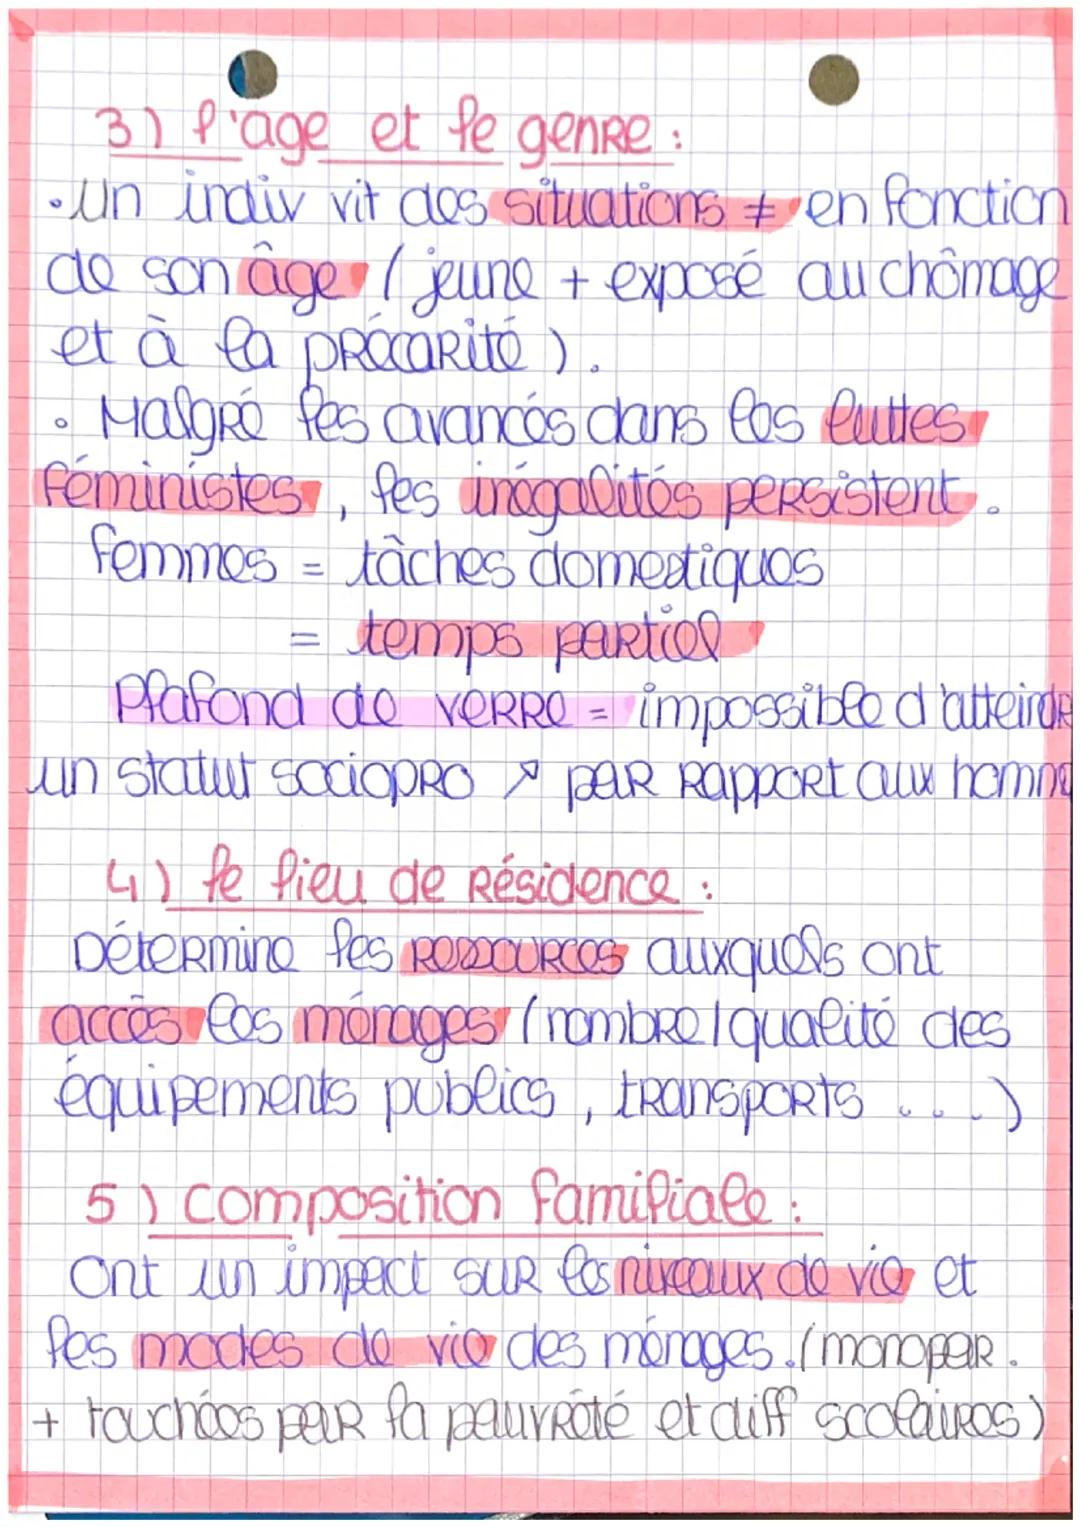 3) l'age et le genre :
• Un indiv vit des situations ≠ en fonction
de son âge (jeune + exposé au chômage
et à la précarité).
• Malgré les avancés dans les luttes
féministes, les inégalités persistent.
femmes = tâches domestiques
= temps partiel
Plafond de verre = impossible d'atteindre
un statut sociopro ↗ par rapport aux homme
4) le lieu de résidence :
Détermine les ressources auxquels ont
accès les ménages (nombre/qualité des
équipements publics, transports ...)
5) Composition familiale :
Ont un impact sur les niveaux de vie et
les modes de vie des ménages. (monopar.
+ touchées par la pauvreté et diff scolaires)